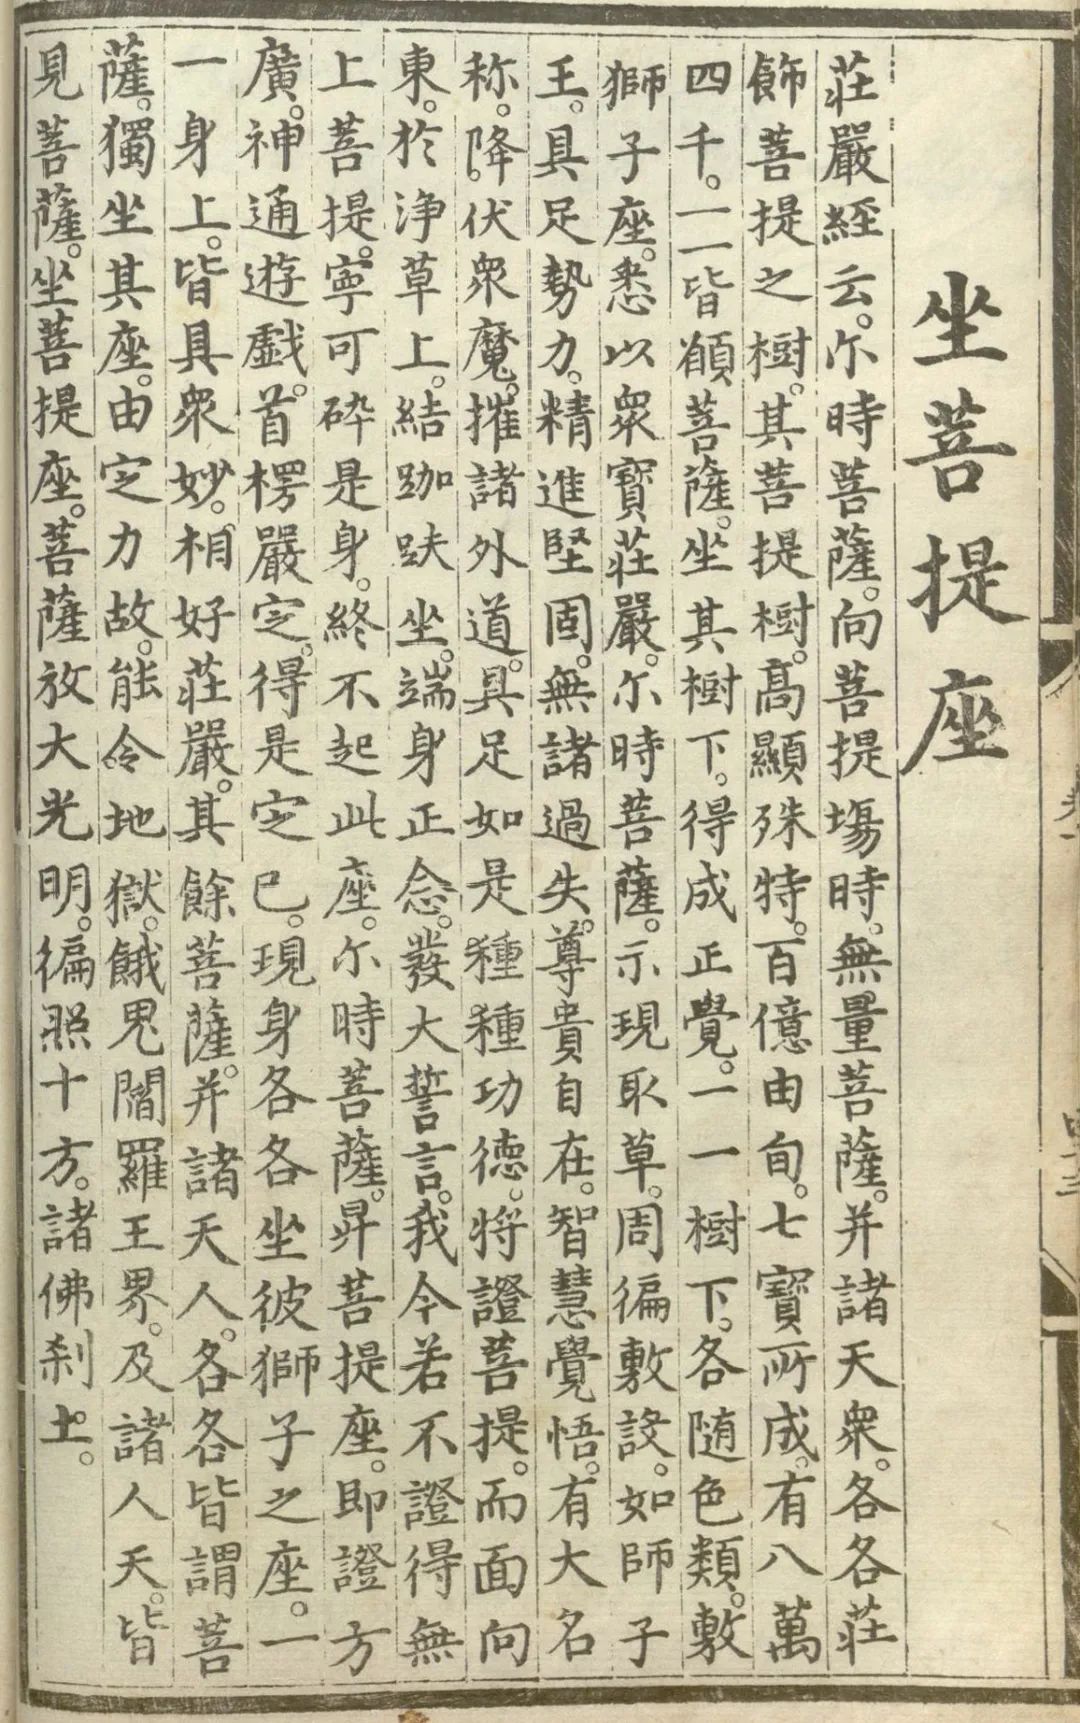 坐菩提座
莊嚴經云。尔時菩薩。向菩提塲時。無量菩薩。并諸天衆。各各莊
飾菩提之樹。其菩提樹。高顯殊特。百億由旬。七寶所成。有八萬
四千。一一皆願菩薩。坐其樹下。得成正覺。一一樹下。各随色類。敷
獅子座。悉以衆寶莊嚴。尔時菩薩。示現取草。周徧敷設。如師子
王。具足勢力。精進堅固。無諸過失。尊貴自在。智慧覺悟。有大名
称。降伏衆魔。摧諸外道。具足如是種種功德。将證菩提。而面向
東。於浄草上。結跏趺坐。端身正念。發大誓言。我今若不證得無
上菩提。寧可碎是身。終不起此座。尔時菩薩。昇菩提座。即證方
廣。神通遊戯。首楞嚴定。得是定已。現身各各坐彼獅子之座。一
一身上。皆具衆妙。相好莊嚴。其餘菩薩。并諸天人。各各皆謂菩
薩。獨坐其座。由定力故。能令地獄。餓鬼閻羅王界。及諸人天。皆
見菩薩。坐菩提座。菩薩放大光明。徧照十方。諸佛刹土。